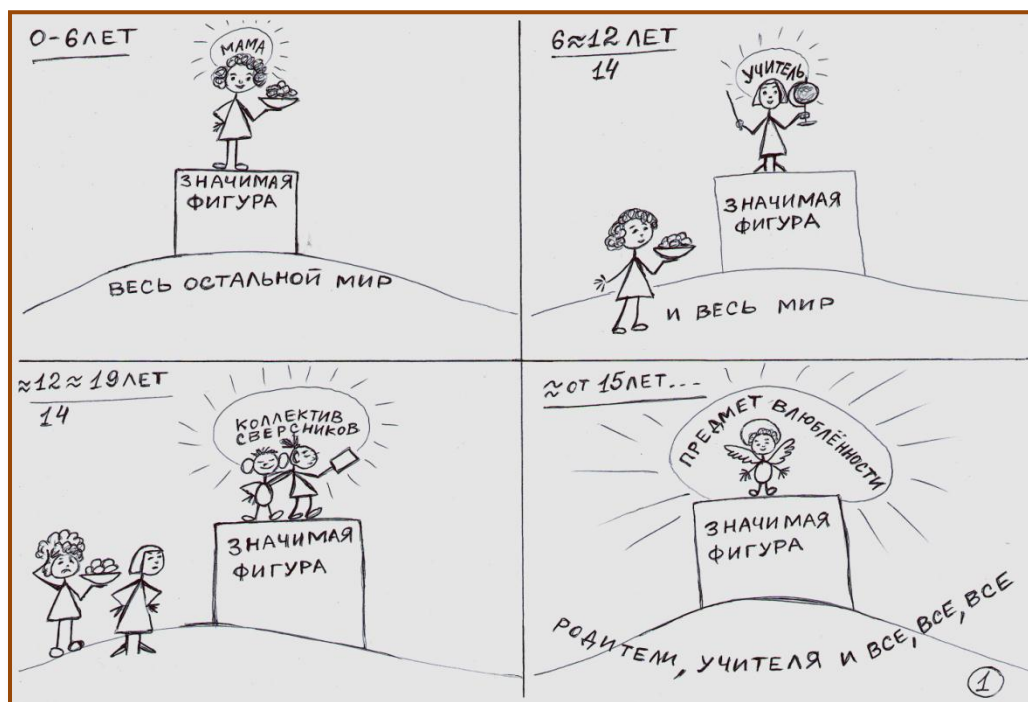 0-6 ЛЕТ
МАМА
ЗНАЧИМАЯ
ФИГУРА
ВЕСЬ ОСТАЛЬНОЙ МИР
6≈12 ЛЕТ
14
УЧИТЕЛЬ
ЗНАЧИМАЯ
ФИГУРА
И ВЕСЬ МИР
≈12≈19 ЛЕТ
14
КОЛЛЕКТИВ
СВЕРСНИКОВ
ЗНАЧИМАЯ
ФИГУРА
≈ОТ 15 ЛЕТ...
ПРЕДМЕТ ВЛЮБЛЁННОСТИ
ЗНАЧИМАЯ
ФИГУРА
РОДИТЕЛИ, УЧИТЕЛЯ И ВСЕ, ВСЕ, ВСЕ
1